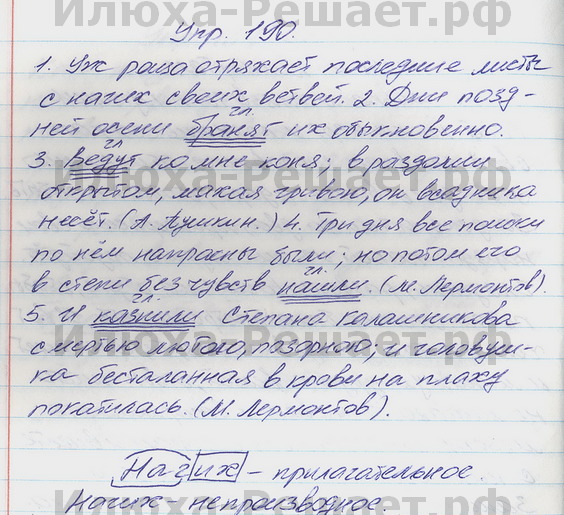 Илюха-Решает.рф
Упр. 190.
1. Уж роща отряхает последние листы
с нагих своих ветвей. 2. Дни позд-
ней осени бранят их обыкновенно.
гл.
3. Ведут ко мне коня; в раздолии
гл.
открытом, махая гривою, он всадника
несёт. (А. Пушкин.) 4. Три дня все поиски
по нём напрасны были; но потом его
в степи без чувств нашли. (М. Лермонтов).
гл.
5. И казнили Степана Калашникова
гл.
смертью лютою, позорною; и головуш-
ка бесталанная в крови на плаху
покатилась. (М. Лермонтов).
Нагих - прилагательное.
Нагих - непроизводное.
Илюха-Решает.рф